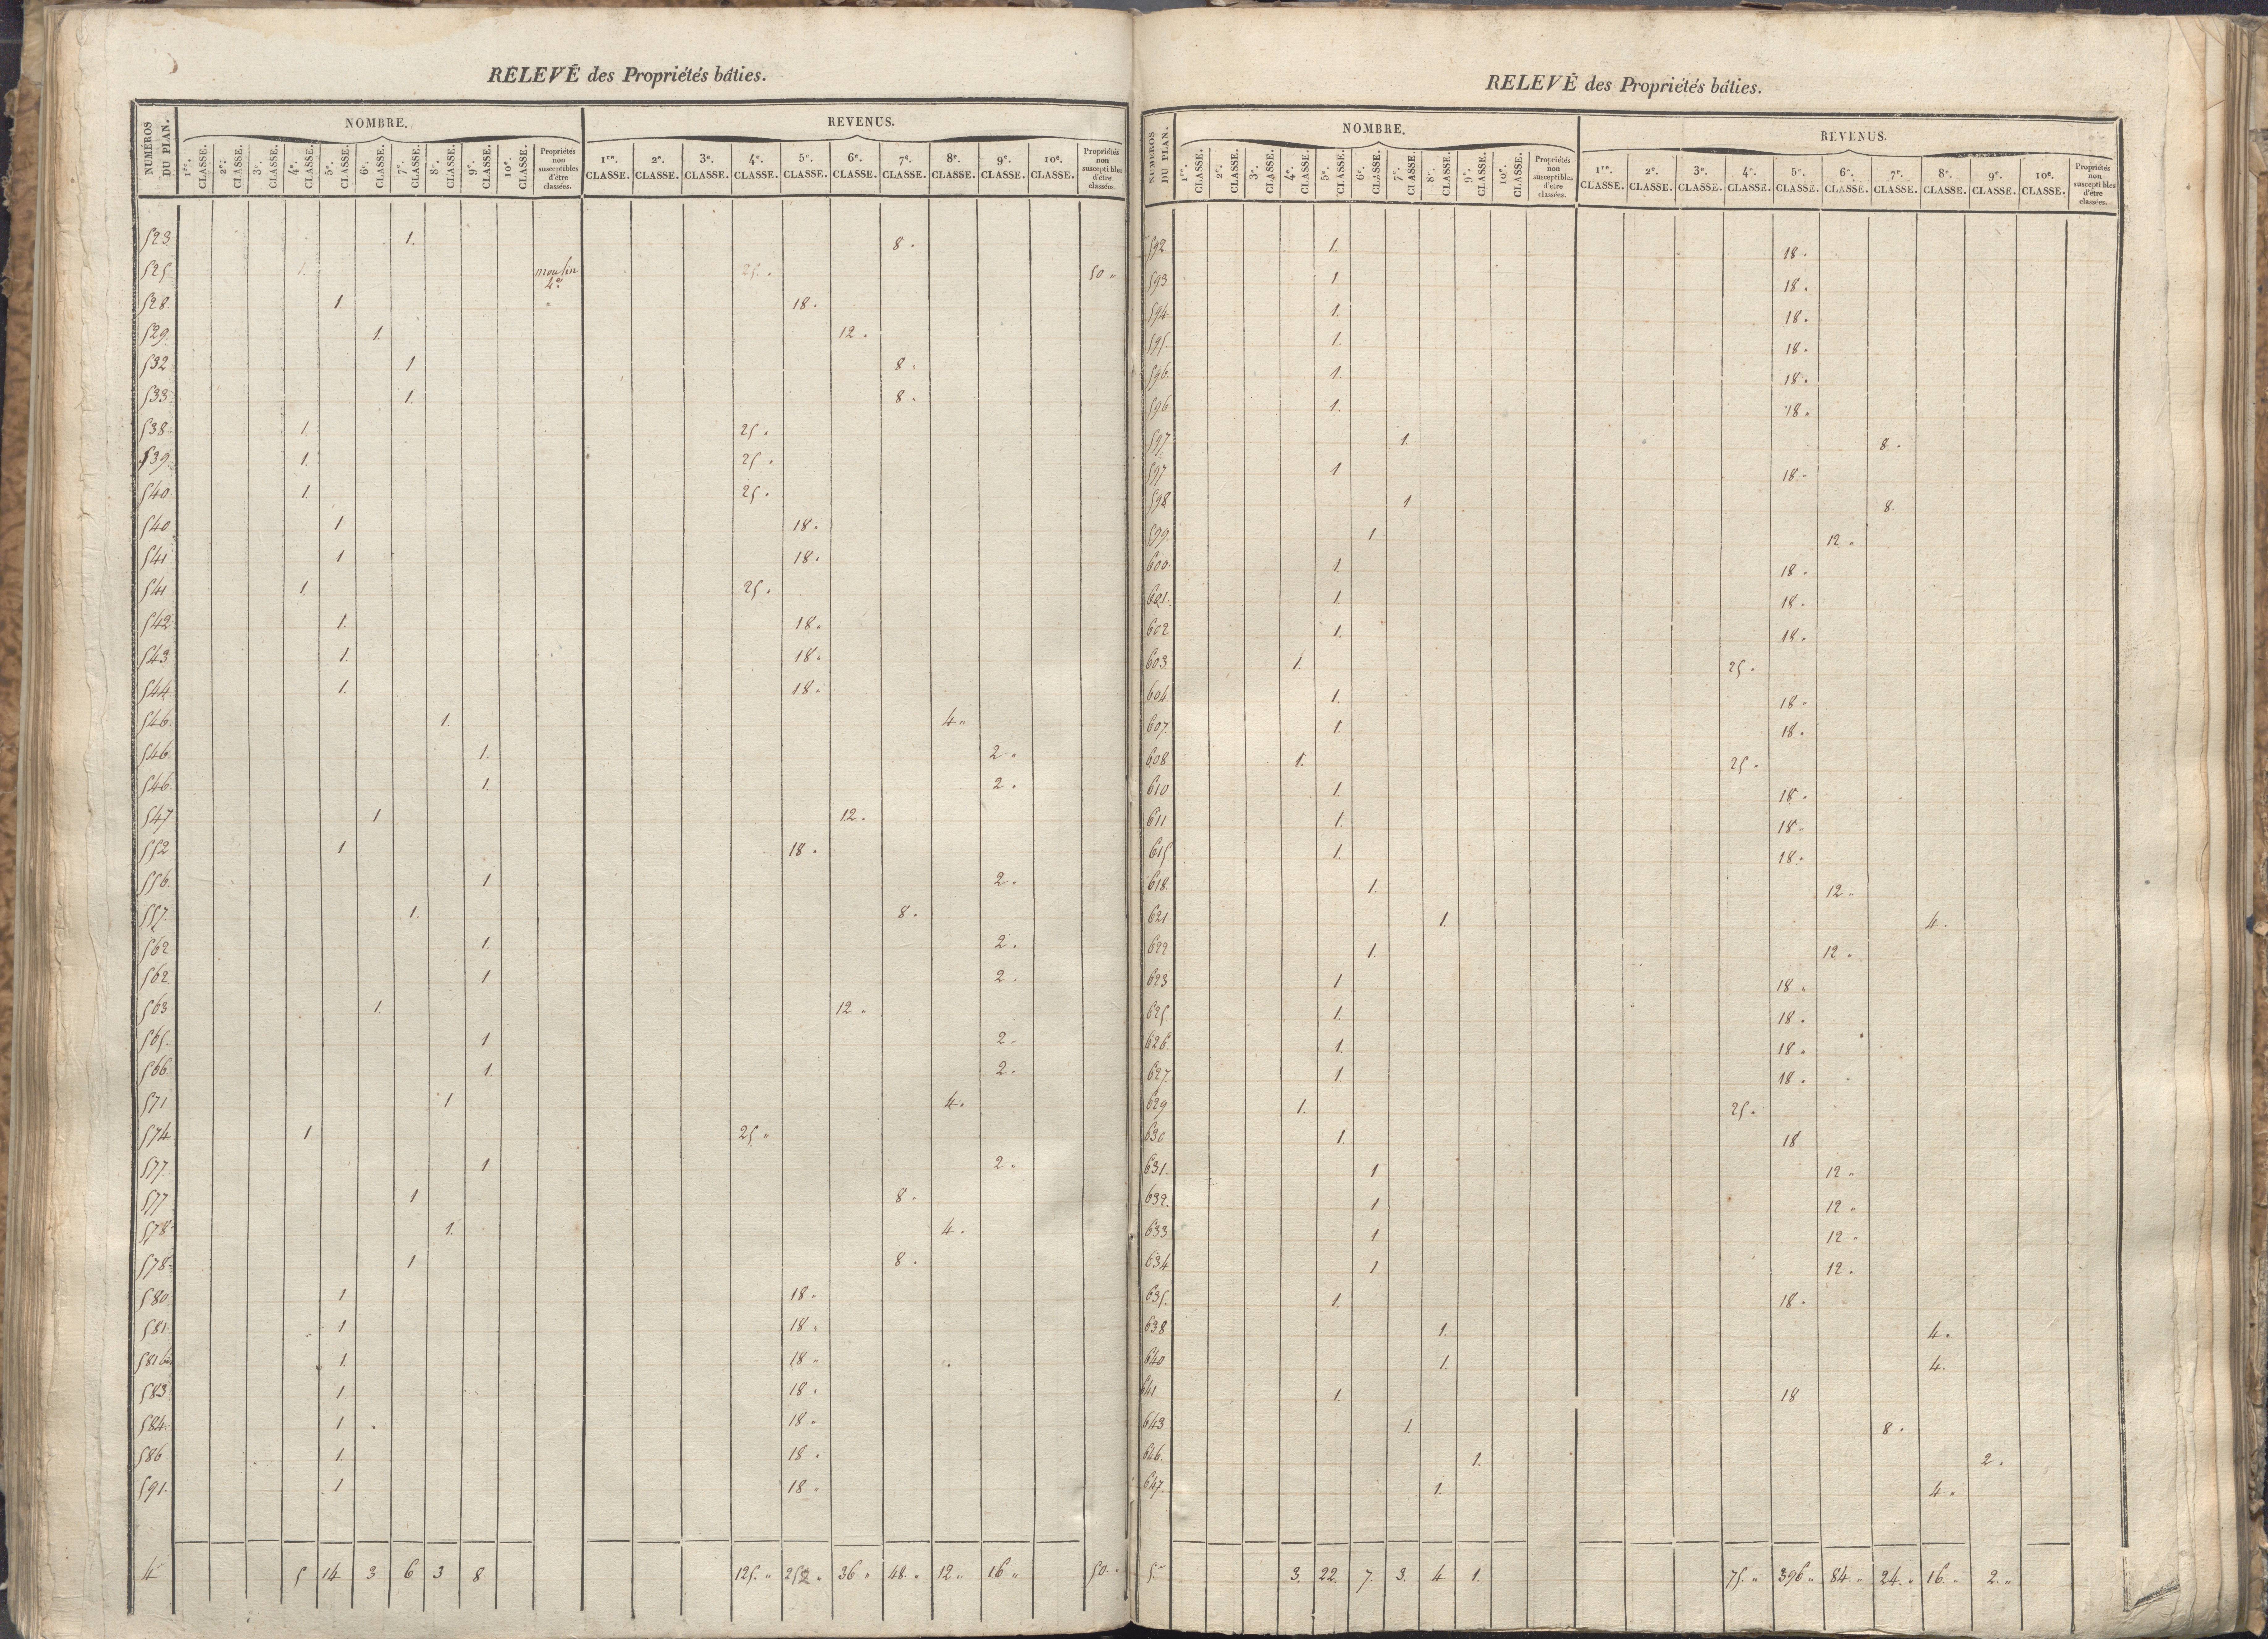 RELEVÉ des Propriétés bâties.
NUMÉROS DU PLAN. NOMBRE. REVENUS.
1re. CLASSE. 2e. CLASSE. 3e. CLASSE. 4e. CLASSE. 5e. CLASSE. 6e. CLASSE. 7e. CLASSE. 8e. CLASSE. 9e. CLASSE. 10e. CLASSE. Propriétés non susceptibles d'être classées. 1re. CLASSE. 2e. CLASSE. 3e. CLASSE. 4e. CLASSE. 5e. CLASSE. 6e. CLASSE. 7e. CLASSE. 8e. CLASSE. 9e. CLASSE. 10e. CLASSE. Propriétés non susceptibles d'être classées.
523. 1. 8.
525. 1. moulin 4e. 25. 50 "
528. 1. " 18.
529. 1. 12.
532 1 8.
533. 1. 8.
538. 1. 25.
539. 1. 25.
540. 1. 25.
540 1 18.
541 1 18.
541 1. 25.
542 1. 18.
543. 1. 18.
544 1. 18.
546. 1. 4 "
546. 1. 2 "
546 1. 2.
547 1 12.
552 1 18.
556. 1 2.
557. 1. 8.
562 1. 2.
562. 1 2.
563 1. 12.
565. 1 2.
566. 1. 2.
571 1 4.
574 1 25 "
577. 1 2 "
577 1 8.
578 1. 4.
578. 1 8.
580. 1 18.
581. 1 18.
581 bis 1. 18 "
583 1 18.
584. 1 18 "
586 1. 18.
591. 1 18 "
4 5 14 3 6 3 8 125. " 252 " 36 " 48. " 12 " 16 " 50. "
RELEVÉ des Propriétés bâties.
NUMÉROS DU PLAN. NOMBRE. REVENUS.
1re. CLASSE. 2e. CLASSE. 3e. CLASSE. 4e. CLASSE. 5e. CLASSE. 6e. CLASSE. 7e. CLASSE. 8e. CLASSE. 9e. CLASSE. 10e. CLASSE. Propriétés non susceptibles d'être classées. 1re. CLASSE. 2e. CLASSE. 3e. CLASSE. 4e. CLASSE. 5e. CLASSE. 6e. CLASSE. 7e. CLASSE. 8e. CLASSE. 9e. CLASSE. 10e. CLASSE. Propriétés non susceptibles d'être classées.
592 1. 18.
593 1 18.
594 1. 18.
595. 1. 18.
596. 1. 18.
596 1. 18.
597 1. 8.
597 1 18.
598 1 8.
599. 1 12 "
600. 1. 18.
601. 1. 18.
602 1. 18.
603. 1. 25.
604. 1. 18.
607. 1. 18.
608 1. 25.
610 1. 18.
611 1. 18.
615 1. 18.
618. 1. 12 "
621 1. 4.
622 1. 12 "
623 1 18 "
625 1. 18.
626. 1. 18 "
627. 1. 18.
629 1. 25.
630 1. 18
631. 1 12 "
632. 1 12 "
633 1 12 "
634 1 12.
635. 1. 18.
638 1. 4.
640 1. 4.
641 1. 18
643 1. 8.
646. 1. 2.
647. 1. 4 "
5 3. 22. 7. 3. 4 1. 75. " 396 " 84. " 24. " 16. " 2. "